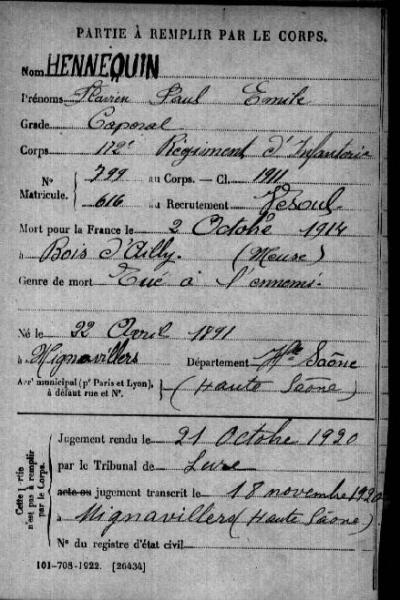 PARTIE À REMPLIR PAR LE CORPS.
Nom HENNEQUIN
Prénoms Flavien Paul Emile
Grade Caporal
Corps 172e Régiment d'Infanterie
No 799 au Corps. — Cl. 1911
Matricule. 616 au Recrutement Vesoul
Mort pour la France le 2 Octobre 1914
à Bois d'Ailly. (Meuse)
Genre de mort Tué à l'ennemi.
Né le 22 Avril 1891
à Mignavillers Département Hte Saône
Arrt municipal (pr Paris et Lyon), à défaut rue et N°. (Haute Saône)
Cette partie n'est pas à remplir par le Corps.
Jugement rendu le 21 Octobre 1920
par le Tribunal de Lure
acte ou jugement transcrit le 18 novembre 1920
à Mignavillers (Haute Saône)
N° du registre d'état civil
101-708-1922. [26434]